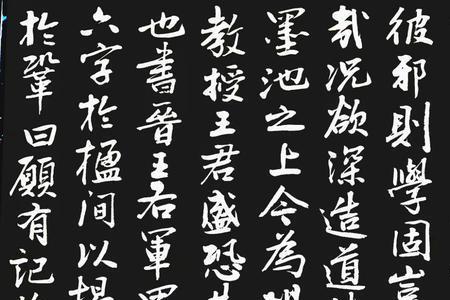 彼邪則學固豈
哉況欲深造道
墨池之上今為
教授王君盛恐
也書晉王右軍
六字於楹間以揭
於鞏曰願有記